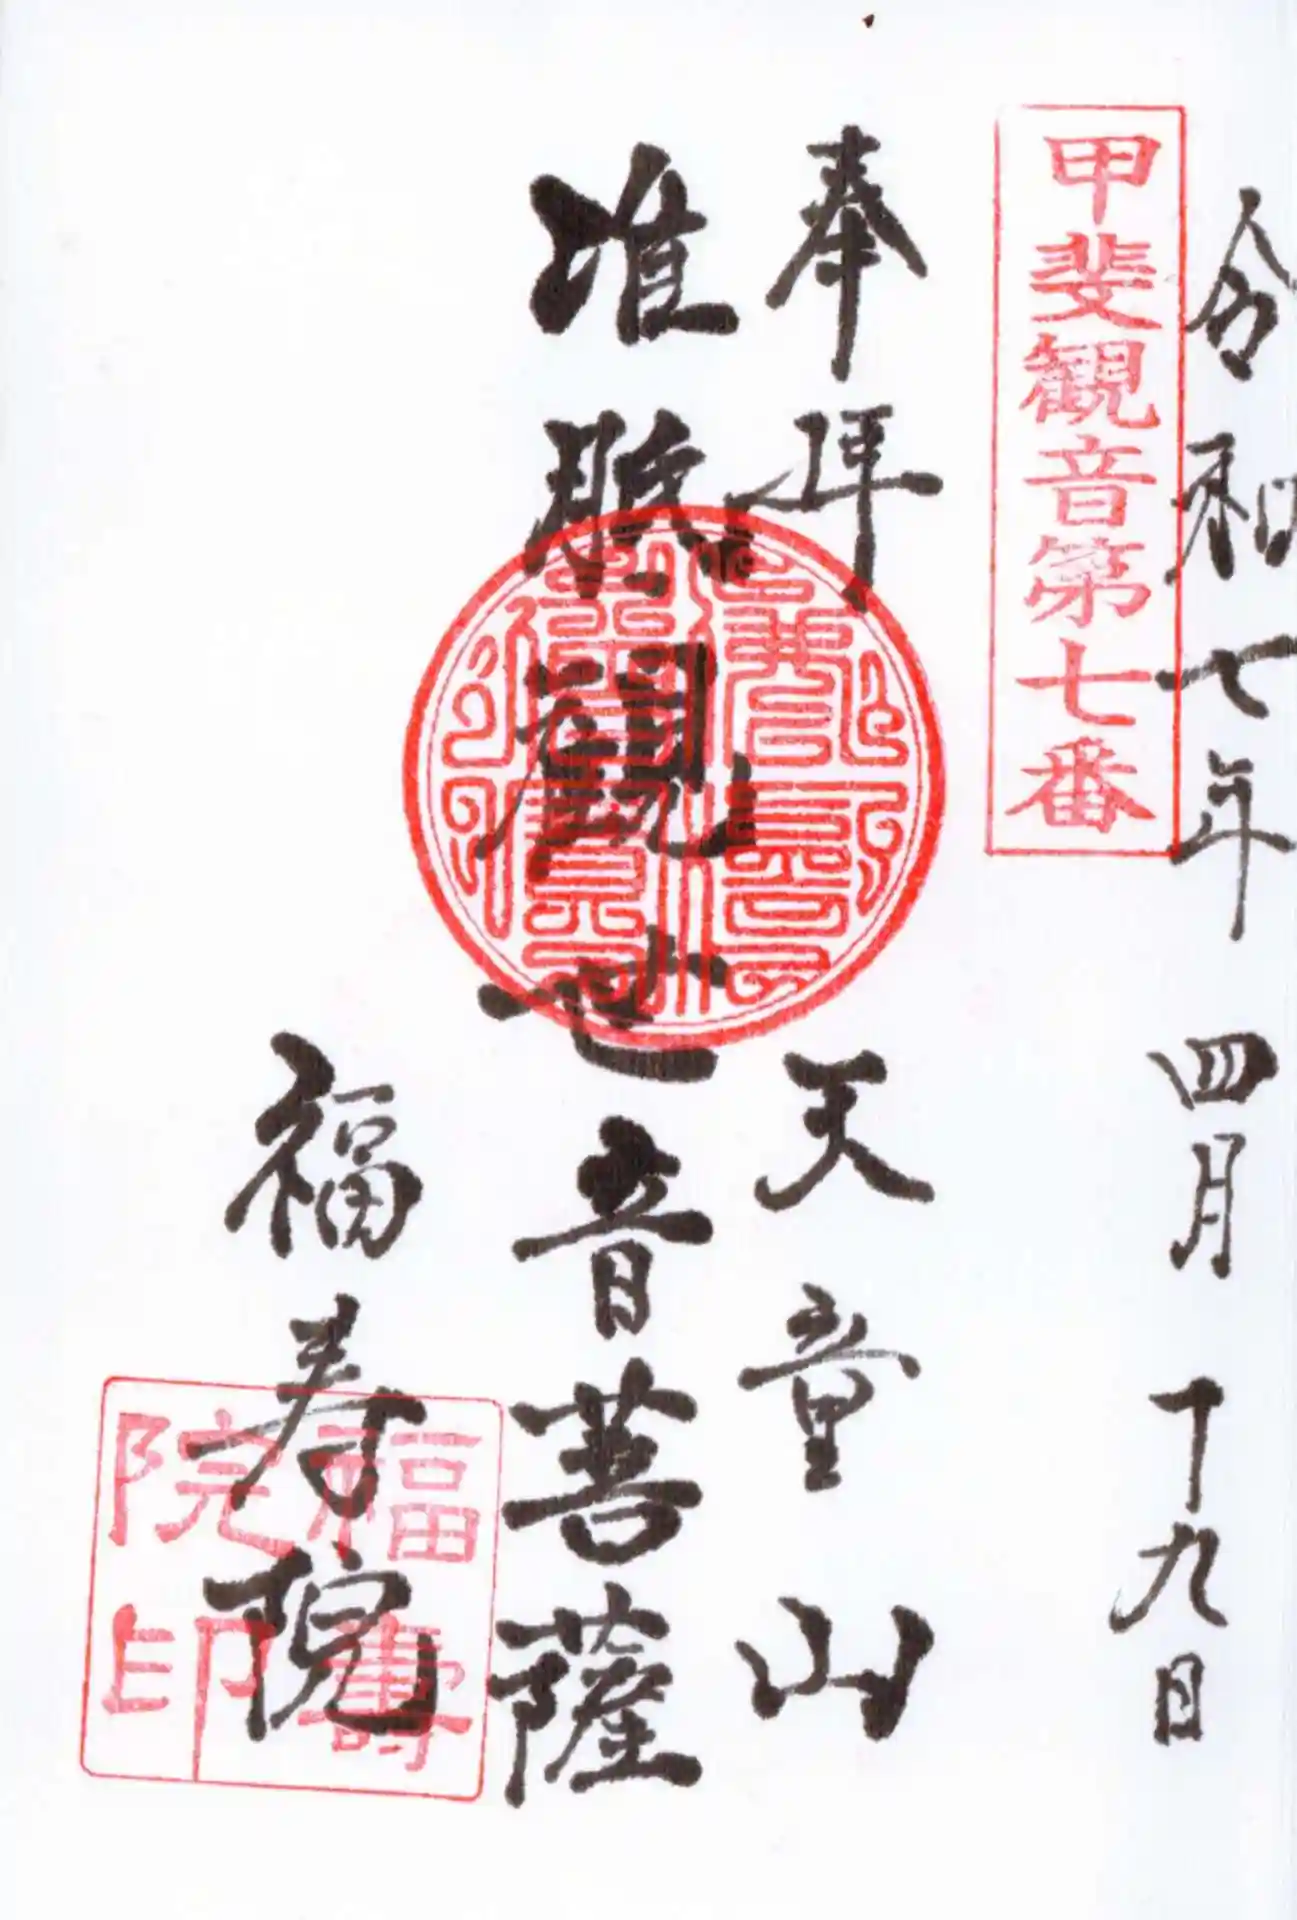 令和七年 四月 十九日
甲斐観音第七番
奉拝 天童山
准胝観世音菩薩
福寿院
福壽院印